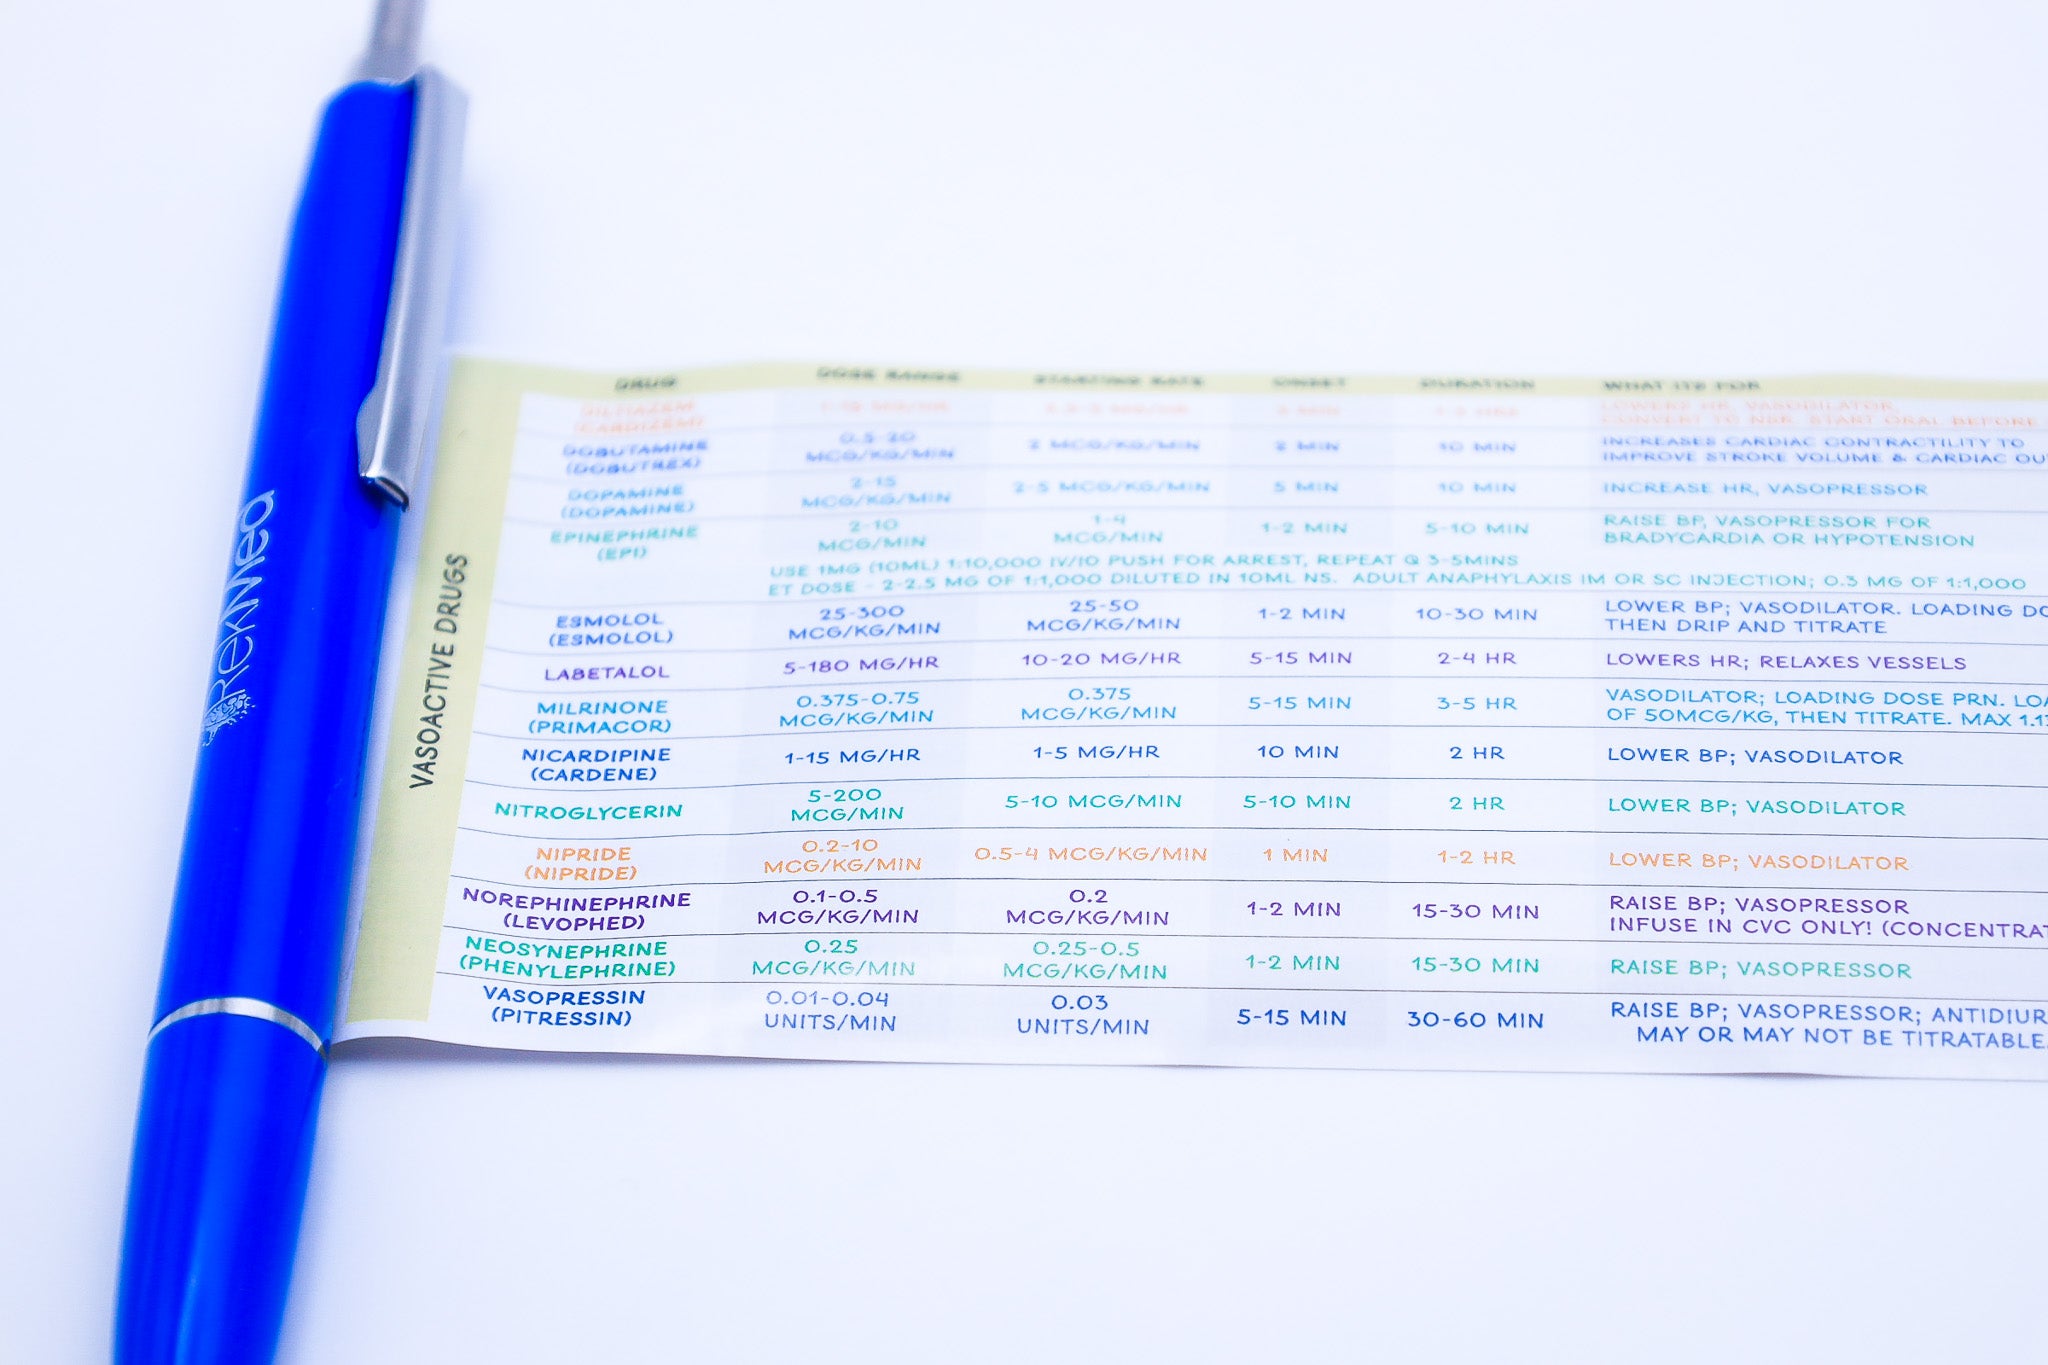 RekMed
VASOACTIVE DRUGS
DRUG DOSE RANGE STARTING RATE ONSET DURATION WHAT ITS FOR
DILTIAZEM 1-15 MG/HR MG/HR MIN HRS LOWERS HR, VASODILATOR,
(CARDIZEM) CONVERT TO NSR. START ORAL BEFORE
DOBUTAMINE 0.5-20 2 MCG/KG/MIN 2 MIN 10 MIN INCREASES CARDIAC CONTRACTILITY TO
(DOBUTREX) MCG/KG/MIN IMPROVE STROKE VOLUME & CARDIAC OU
DOPAMINE 2-15 2-5 MCG/KG/MIN 5 MIN 10 MIN INCREASE HR, VASOPRESSOR
(DOPAMINE) MCG/KG/MIN
EPINEPHRINE 2-10 1-4 1-2 MIN 5-10 MIN RAISE BP, VASOPRESSOR FOR
(EPI) MCG/MIN MCG/MIN BRADYCARDIA OR HYPOTENSION
USE 1MG (10ML) 1:10,000 IV/IO PUSH FOR ARREST, REPEAT Q 3-5MINS
ET DOSE - 2-2.5 MG OF 1:1,000 DILUTED IN 10ML NS. ADULT ANAPHYLAXIS IM OR SC INJECTION; 0.3 MG OF 1:1,000
ESMOLOL 25-300 25-50 1-2 MIN 10-30 MIN LOWER BP; VASODILATOR. LOADING DO
(ESMOLOL) MCG/KG/MIN MCG/KG/MIN THEN DRIP AND TITRATE
LABETALOL 5-180 MG/HR 10-20 MG/HR 5-15 MIN 2-4 HR LOWERS HR; RELAXES VESSELS
MILRINONE 0.375-0.75 0.375 5-15 MIN 3-5 HR VASODILATOR; LOADING DOSE PRN. LOA
(PRIMACOR) MCG/KG/MIN MCG/KG/MIN OF 50MCG/KG, THEN TITRATE. MAX 1.1
NICARDIPINE 1-15 MG/HR 1-5 MG/HR 10 MIN 2 HR LOWER BP; VASODILATOR
(CARDENE)
NITROGLYCERIN 5-200 5-10 MCG/MIN 5-10 MIN 2 HR LOWER BP; VASODILATOR
MCG/MIN
NIPRIDE 0.2-10 0.5-4 MCG/KG/MIN 1 MIN 1-2 HR LOWER BP; VASODILATOR
(NIPRIDE) MCG/KG/MIN
NOREPHINEPHRINE 0.1-0.5 0.2 1-2 MIN 15-30 MIN RAISE BP; VASOPRESSOR
(LEVOPHED) MCG/KG/MIN MCG/KG/MIN INFUSE IN CVC ONLY! (CONCENTRAT
NEOSYNEPHRINE 0.25 0.25-0.5 1-2 MIN 15-30 MIN RAISE BP; VASOPRESSOR
(PHENYLEPHRINE) MCG/KG/MIN MCG/KG/MIN
VASOPRESSIN 0.01-0.04 0.03 5-15 MIN 30-60 MIN RAISE BP; VASOPRESSOR; ANTIDIUR
(PITRESSIN) UNITS/MIN UNITS/MIN MAY OR MAY NOT BE TITRATABLE.